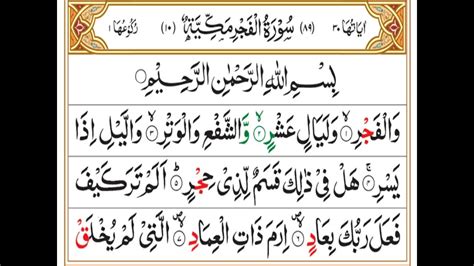 اٰیَاتُهَا ٣٠ (٨٩) سُوْرَةُ الْفَجْرِ مَكِّيَّةٌ (١٠) رُكُوْعُهَا ١
بِسْمِ اللّٰهِ الرَّحْمٰنِ الرَّحِيْمِ
وَالْفَجْرِ ۙ﴿١﴾ وَلَيَالٍ عَشْرٍ ۙ﴿٢﴾ وَّالشَّفْعِ وَالْوَتْرِ ۙ﴿٣﴾ وَالَّيْلِ اِذَا
يَسْرِ ۚ﴿٤﴾ هَلْ فِيْ ذٰلِكَ قَسَمٌ لِّذِيْ حِجْرٍ ؕ﴿٥﴾ اَلَمْ تَرَ كَيْفَ
فَعَلَ رَبُّكَ بِعَادٍ ۪ۙ﴿٦﴾ اِرَمَ ذَاتِ الْعِمَادِ ۪ۙ﴿٧﴾ الَّتِيْ لَمْ يُخْلَقْ